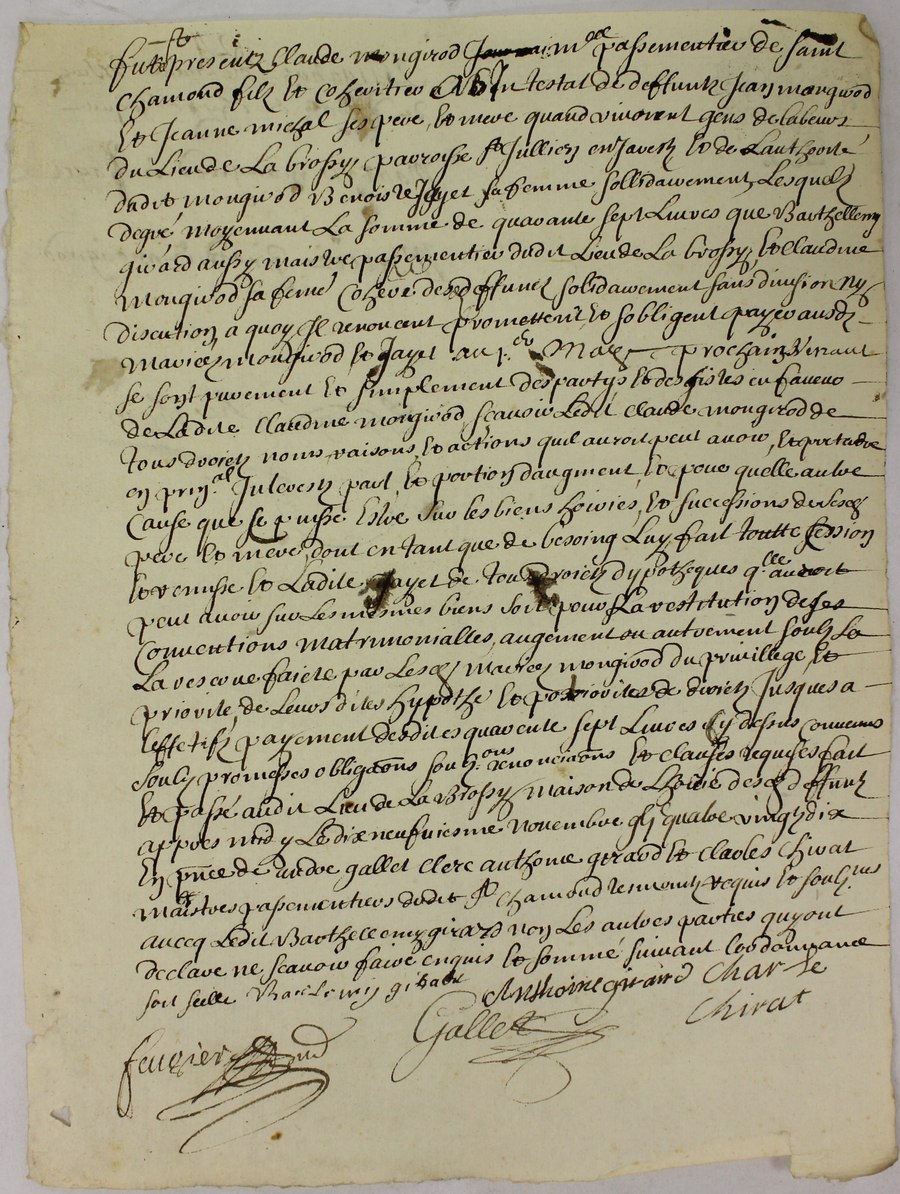 fut presentz Claude mongirod mre passementier de saint
chamond filz et coheritier ab intestat de deffuntz Jean mongirod
et Jeanne michal ses pere et mere quand vivoient gens de labeurs
du Lieu de La brossy parroisse st Jullien en Jarestz et de Lauthorité
dudit mongirod Benoiste Jayet sa femme sollidairement Lesquelz
degré moyennant La somme de quarante sept Livres que Barthellemy
girard aussy maistre passementier dudit Lieu de La brossy et Claudine
mongirod sa feme Cohere desd deffunctz solidairement sans division ny
discution a quoy Jl renoncent promettent et sobligent payer ausdz
mariez mongirod et Jayet au pr. prochain venant
se sont purement et simplement despartys et desistes en faveur
de Ladite Claudine mongirod scavoir Ledit Claude mongirod de
tous droitz noms raisons et actions quil auroit peut avoir et pretendre
en prin.al Jnterestz part et portion daugment et pour quelle autre
Cause que se puisse Estre sur les biens hoiries et successions de sesdz
pere et mere dont en tant que de besoing Luy fait toutte Cession
et remise et Ladite Jayet de tous droictz dypotheques q.lle auroit
peut avoir sur Les mesmes biens soit pour La restitution de ses
Conventions matrimonialles, augement ou autrement soubz La
La reserve faicte par Lesdz mariez mongirod du privillege et
priorité de Leurs dites hypothe et posteriorites de droictz Jusques a
Leffetif payement desdites quarente sept Livres cy dessus convenus
soubz promesses obligaons soubz.ons renonciaons et clauses requises fait
et passé audit Lieu de La Brossy maison de Lhoirie desdz deffuntz
appres midy Le dix neufviesme novembre gbj quatre vingtz dix
En pnce de andre gallet clerc anthoine girard et Charles Chirat
maistres passementiers dudit st chamond tesmointz requis et soubz.nes
avecq Ledit Barthellemy girard non Les autres parties quy ont
declare ne scavoir faire enquis et sommé suivant Lordonnance
soit scelle Bartlemy girard Anthoine girard Charle
Gallet Chirat